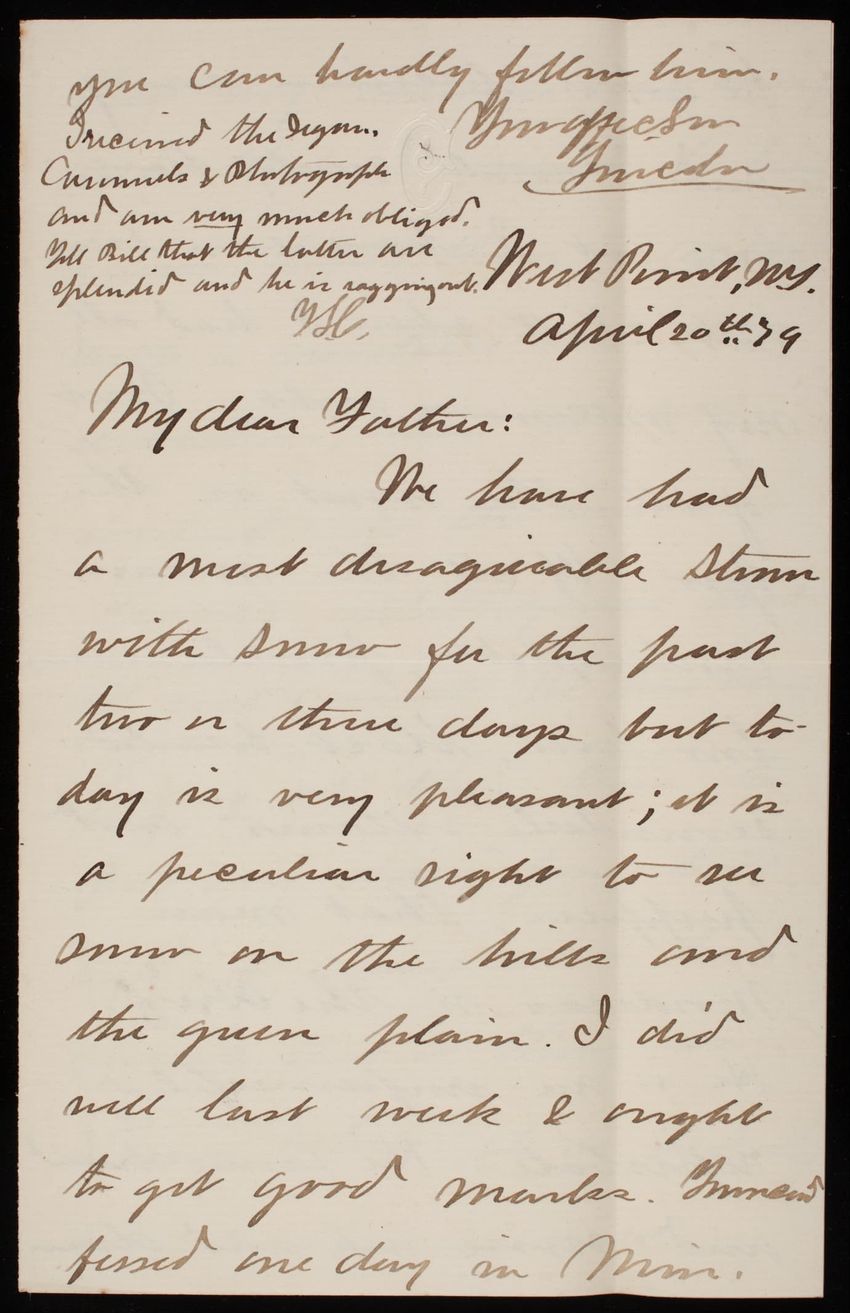 you can hardly follow him.
Your affec Son
Lincoln
I received the Segars.
Caramels & Photograph
and am very much obliged.
Tell Bill that the latter are
splendid and he is ragging out.
West Point, N.Y.
April 20th "79
My dear Father:
We have had
a most disagreeable storm
with snow for the past
two or three days but to-
day is very pleasant; it is
a peculiar sight to see
snow on the hills and
the green plain. I did
well last week & ought
to get good marks.
fessed one day in Min.